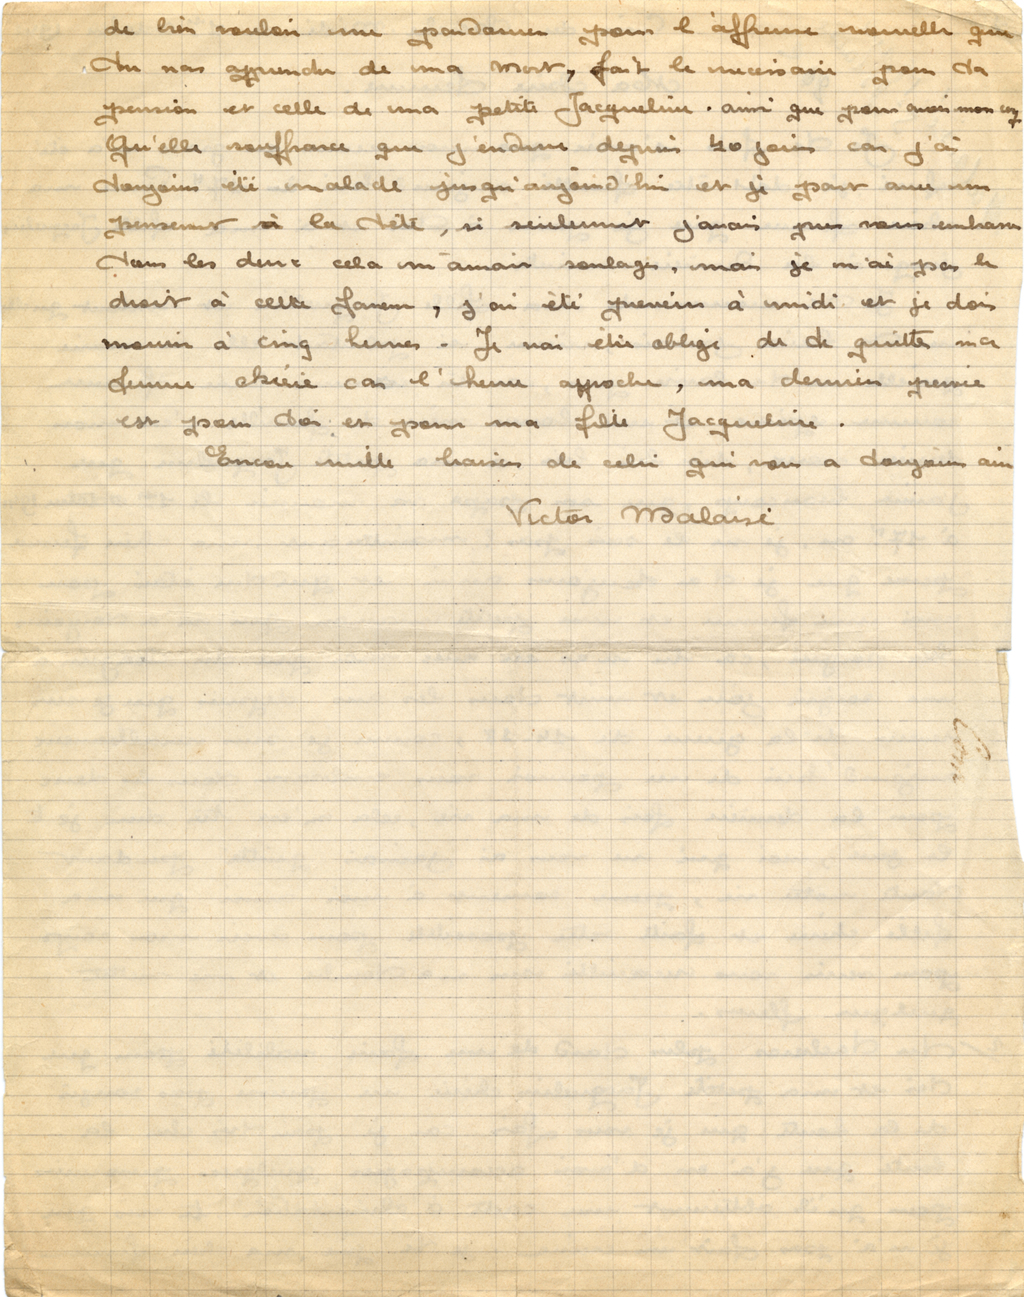 de bien vouloir me pardonner pour l'affreuse nouvelle que
tu vas apprendre de ma mort, fait le necessaire pour ta
pension et celle de ma petite Jacqueline. ainsi que pour avoir mon
Qu'elle souffrance que j'endure depuis 40 jours car j'ai
toujours été malade jusqu'aujourd'hui et je part avec un
pansement à la tête, si seulement j'avais pus vous embrasser
tous les deux cela m'aurait soulager, mais je n'ai pas le
droit à cette faveur, j'ai été prevenu à midi et je dois
mourir à cinq heures. Je vai être obligé de te quitter ma
femme chérie car l'heure approche, ma dernier pensée
est pour toi et pour ma fille Jacqueline.
Encore mille baisers de celui qui vous a toujours
Victor Malaisé